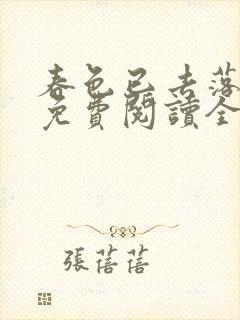 春色已去落
免費閱讀全
張蓓蓓